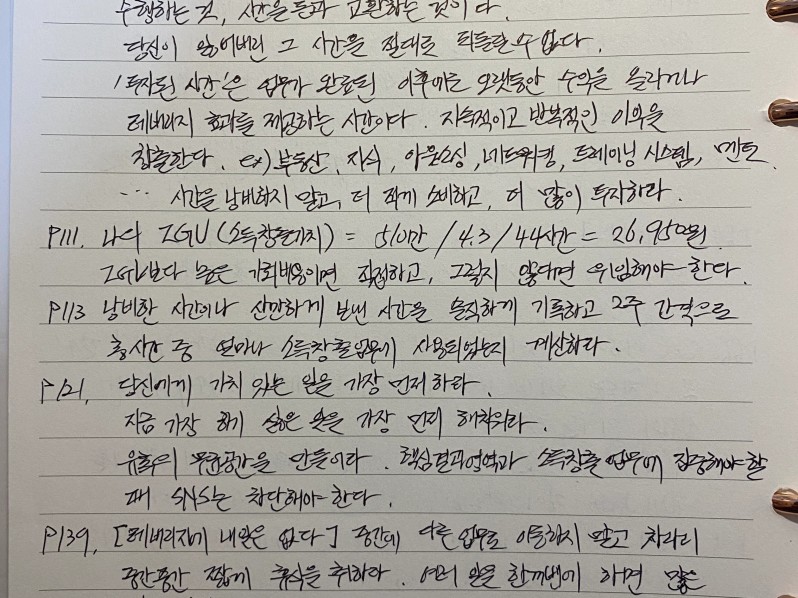 수행하는 것, 시간을 돈과 교환하는 것이다.
당신이 잃어버린 그 시간을 절대로 되돌릴 수 없다.
'투자된 시간'은 업무가 완료된 이후에도 오랫동안 수익을 올리거나
레버리지 효과를 제공하는 시간이다. 지속적이고 반복적인 이익을
창출한다. ex) 부동산, 지식, 아웃소싱, 네트워킹, 트레이닝 시스템, 멘토
... 시간을 낭비하지 말고, 더 적게 소비하고, 더 많이 투자하라.
P111. 나의 IGV (소득창출가치) = 510만 / 4.3 / 44시간 = 26,950원.
IGV보다 높은 기회비용이면 직접하고, 그렇지 않다면 위임해야 한다.
P113 낭비한 시간이나 산만하게 보낸 시간을 솔직하게 기록하고 2주 간격으로
총시간 중 얼마나 소득창출업무에 사용되었는지 계산하라.
P121. 당신에게 가치 있는 일을 가장 먼저 하라.
지금 가장 하기 싫은 일을 가장 먼저 해치워라.
무균공간을 만들어라. 핵심결과영역과 소득창출 업무에 집중해야 할
때 SNS는 차단해야 한다.
P139. [레버리지에 내일은 없다] 중간에 다른 업무로 이동하지 말고 차라리
중간중간 짧게 휴식을 취하라. 여러 일을 한꺼번에 하면 많은